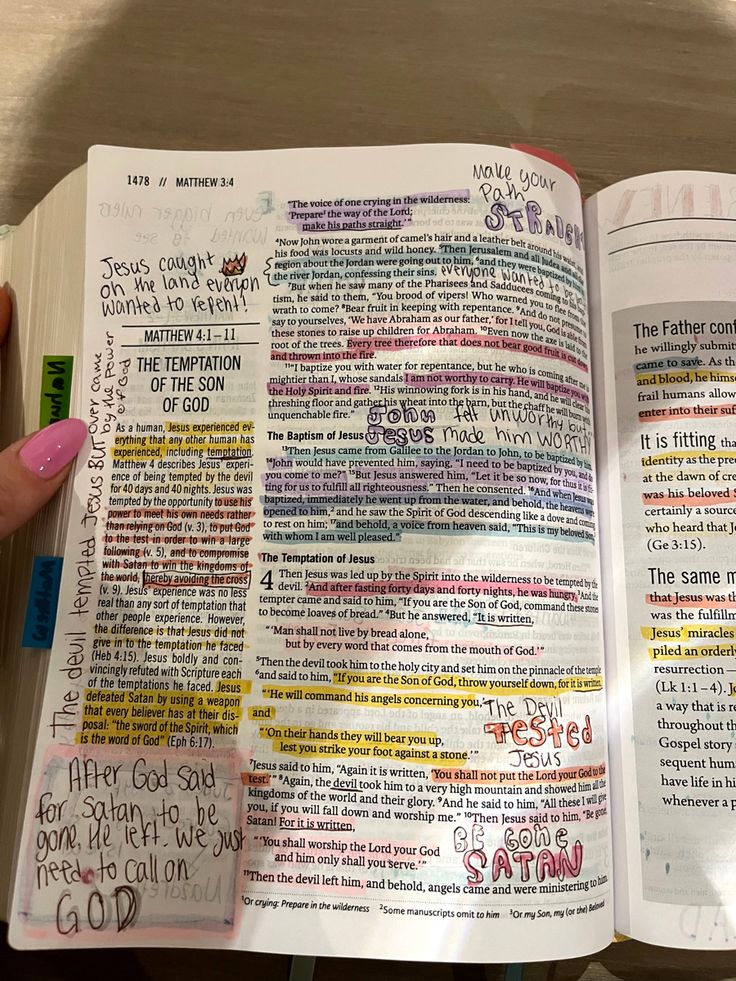 1478 // MATTHEW 3:4
Jesus caught
on the land everyon
wanted to repent!
MATTHEW 4:1–11
THE TEMPTATION
OF THE SON
OF GOD
As a human, Jesus experienced ev-
erything that any other human has
experienced, including temptation.
Matthew 4 describes Jesus' experi-
ence of being tempted by the devil
for 40 days and 40 nights. Jesus was
tempted by the opportunity to use his
power to meet his own needs rather
than relying on God (v. 3), to put God
to the test in order to win a large
following (v. 5), and to compromise
with Satan to win the kingdoms of
the world, thereby avoiding the cross
(v. 9). Jesus' experience was no less
real than any sort of temptation that
other people experience. However,
the difference is that Jesus did not
give in to the temptation he faced
(Heb 4:15). Jesus boldly and con-
vincingly refuted with Scripture each
of the temptations he faced. Jesus
defeated Satan by using a weapon
that every believer has at their dis-
posal: "the sword of the Spirit, which
is the word of God" (Eph 6:17).
The devil tempted Jesus BUT over came
by the Power
of God
After God said
for Satan to be
gone, He left. we just
need to call on
GOD
Make your
Path
"The voice of one crying in the wilderness:
'Prepare¹ the way of the Lord;
make his paths straight.'"
⁴Now John wore a garment of camel's hair and a leather belt around his waist, and
his food was locusts and wild honey. ⁵Then Jerusalem and all Judea and all the
region about the Jordan were going out to him, ⁶and they were baptized by him in
the river Jordan, confessing their sins.
everyone wanted to be
⁷But when he saw many of the Pharisees and Sadducees coming to his bap-
tism, he said to them, "You brood of vipers! Who warned you to flee from
wrath to come? ⁸Bear fruit in keeping with repentance. ⁹And do not presume
say to yourselves, 'We have Abraham as our father,' for I tell you, God is able from
these stones to raise up children for Abraham. ¹⁰Even now the axe is laid to the
root of the trees. Every tree therefore that does not bear good fruit is cut down
and thrown into the fire.
¹¹"I baptize you with water for repentance, but he who is coming after me is
mightier than I, whose sandals I am not worthy to carry. He will baptize you with
the Holy Spirit and fire. ¹²His winnowing fork is in his hand, and he will clear his
threshing floor and gather his wheat into the barn, but the chaff he will burn with
unquenchable fire."
John felt unworthy but
Jesus made him WORTHY
The Baptism of Jesus
¹³Then Jesus came from Galilee to the Jordan to John, to be baptized by him.
¹⁴John would have prevented him, saying, "I need to be baptized by you, and do
you come to me?" ¹⁵But Jesus answered him, "Let it be so now, for thus it is fit-
ting for us to fulfill all righteousness." Then he consented. ¹⁶And when Jesus was
baptized, immediately he went up from the water, and behold, the heavens were
opened to him,² and he saw the Spirit of God descending like a dove and coming
to rest on him; ¹⁷and behold, a voice from heaven said, "This is my beloved Son,³
with whom I am well pleased."
The Temptation of Jesus
4 Then Jesus was led up by the Spirit into the wilderness to be tempted by the
devil. ²And after fasting forty days and forty nights, he was hungry. ³And the
tempter came and said to him, "If you are the Son of God, command these stones
to become loaves of bread." ⁴But he answered, "It is written,
"'Man shall not live by bread alone,
but by every word that comes from the mouth of God.'"
⁵Then the devil took him to the holy city and set him on the pinnacle of the temple
⁶and said to him, "If you are the Son of God, throw yourself down, for it is written,
"'He will command his angels concerning you,'
and
"'On their hands they will bear you up,
lest you strike your foot against a stone.'"
The Devil
TESTED
Jesus
⁷Jesus said to him, "Again it is written, 'You shall not put the Lord your God to the
test.'" ⁸Again, the devil took him to a very high mountain and showed him all the
kingdoms of the world and their glory. ⁹And he said to him, "All these I will give
you, if you will fall down and worship me." ¹⁰Then Jesus said to him, "Be gone,
Satan! For it is written,
"'You shall worship the Lord your God
and him only shall you serve.'"
BE GONE
SATAN
¹¹Then the devil left him, and behold, angels came and were ministering to him.
¹Or crying: Prepare in the wilderness ²Some manuscripts omit to him ³Or my Son, my (or the) Beloved
The Father conf
he willingly submit
came to save. As th
and blood, he himse
frail humans allow
enter into their suf
It is fitting tha
identity as the pre
at the dawn of cre
was his beloved S
certainly a source
who heard that J
(Ge 3:15).
The same m
that Jesus was th
was the fulfillm
Jesus' miracles
piled an orderly
resurrection—
(Lk 1:1–4). J
a way that is re
throughout th
Gospel story
sequent hum
have life in hi
whenever a p